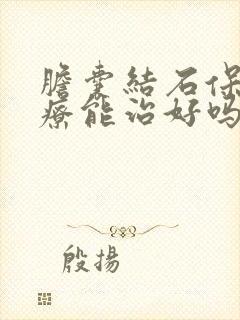 膽囊結石保
療能治好嗎
殷揚